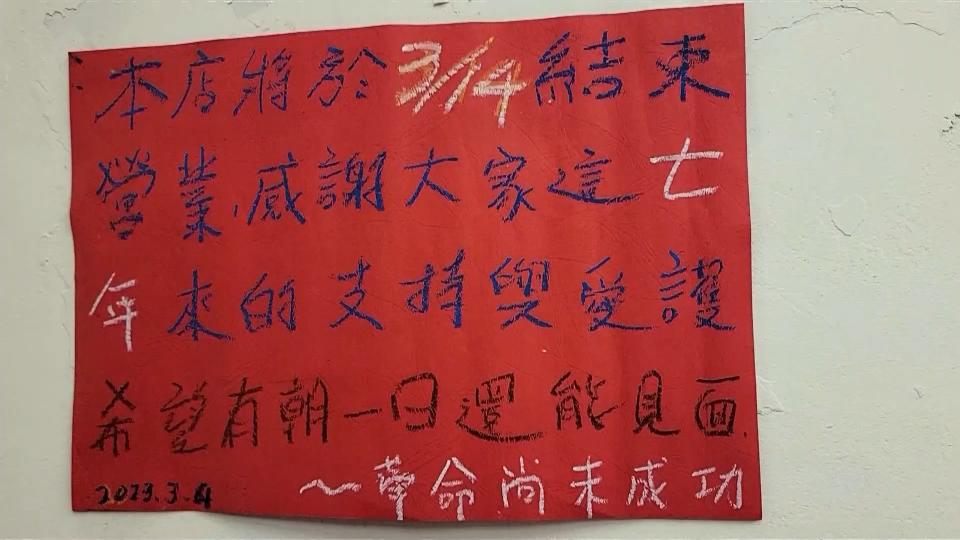 本店將於3/14結束
營業,感謝大家這七
年來的支持與愛護
希望有朝一日還能見面.
2023.3.4 ～革命尚未成功